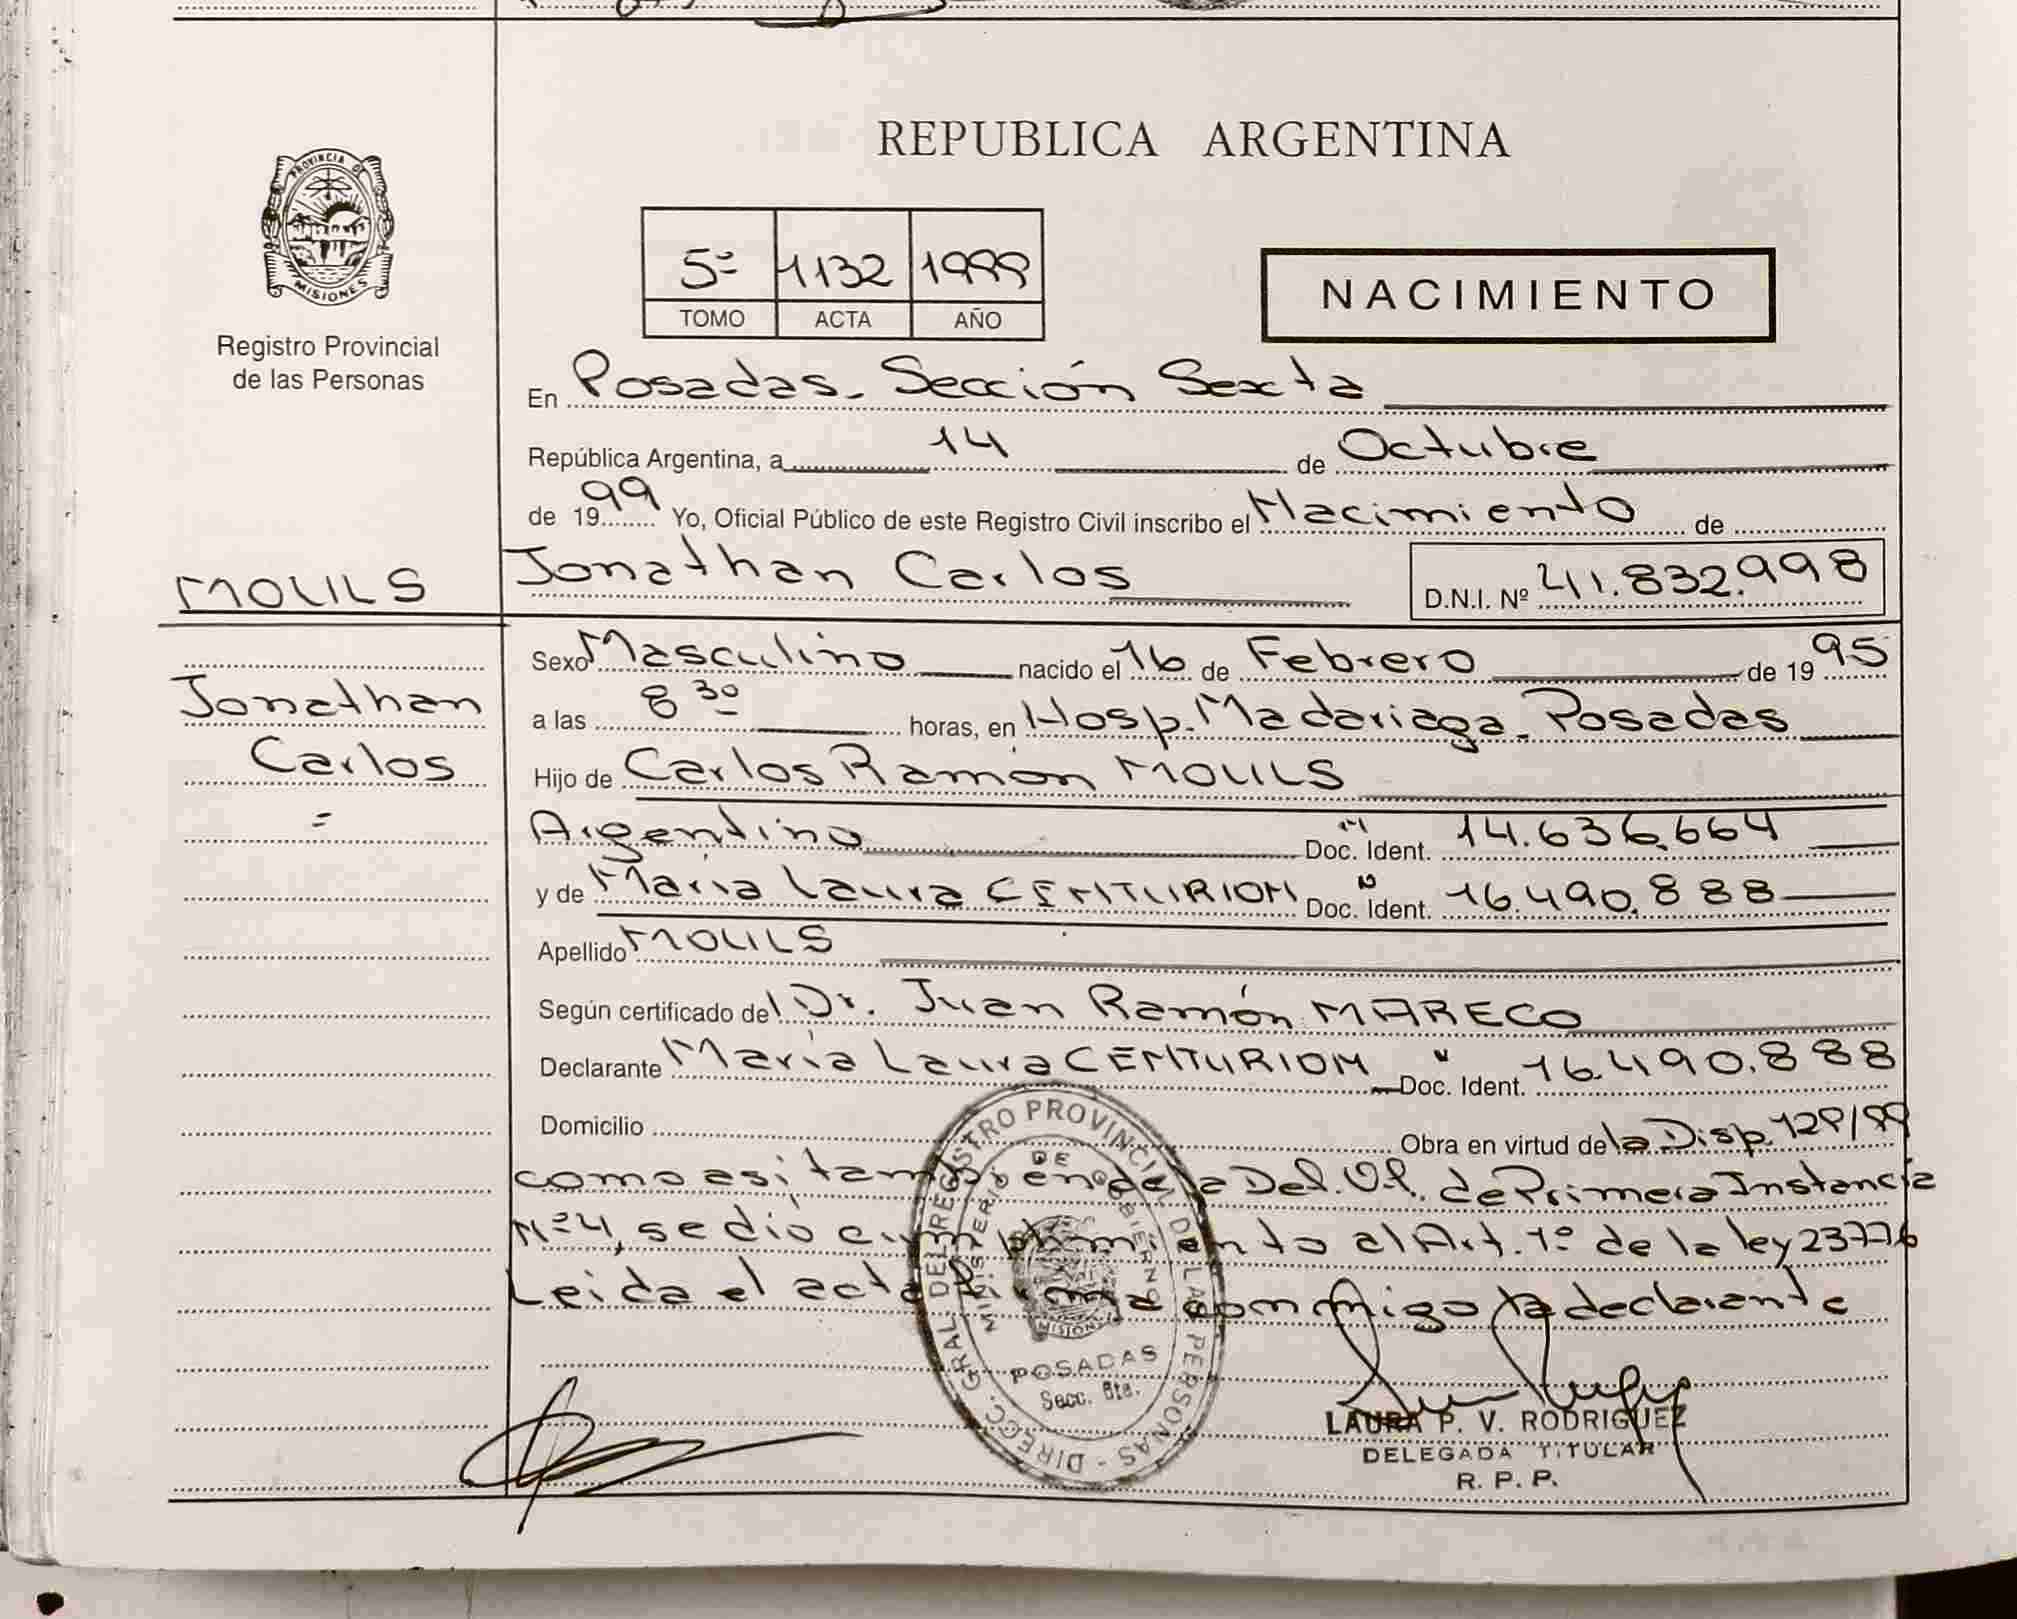 REPUBLICA ARGENTINA
PROVINCIA DE
MISIONES
Registro Provincial
de las Personas
5º 1132 1999
TOMO ACTA AÑO
NACIMIENTO
En Posadas. Sección Sexta
República Argentina, a 14 de Octubre
de 1999 Yo, Oficial Público de este Registro Civil inscribo el Nacimiento de
MOULS
Jonathan Carlos D.N.I. Nº 41.832.998
Sexo Masculino nacido el 16 de Febrero de 1995
Jonathan
a las 8 30 horas, en Hosp. Madariaga. Posadas
Carlos
Hijo de Carlos Ramón MOULS
=
Argentino Doc. Ident. 14.636.664
y de María Laura CENTURION Doc. Ident. 16.490.888
Apellido MOULS
Según certificado del Dr. Juan Ramón MARECO
Declarante María Laura CENTURION Doc. Ident. 16.490.888
Domicilio Obra en virtud de la Disp.
como así en de Primera Instancia
Nº 4, se dió cumplimiento al Art. 1º de la ley 23776
Leida el acta firma conmigo la declarante
DIRECC. GRAL. DEL REGISTRO PROVINCIAL DE LAS PERSONAS -
MINISTERIO DE GOBIERNO
MISIONES
POSADAS
Secc. 6ta.
LAURA P. V. RODRIGUEZ
DELEGADA TITULAR
R. P. P.